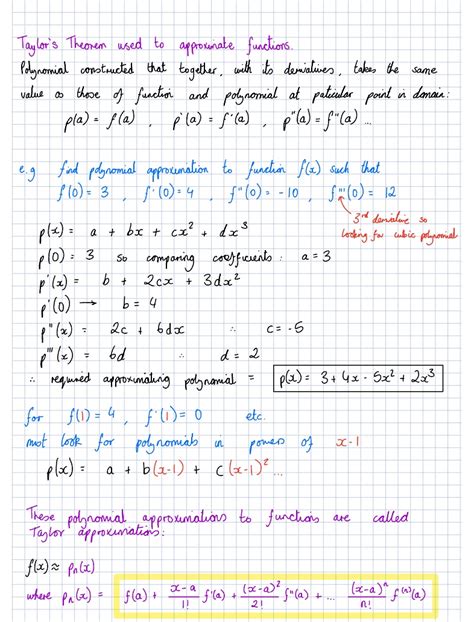 Taylor's Theorem used to approximate functions.
Polynomial constructed that together, with its derivatives, takes the same
value as those of function and polynomial at paticular point in domain:
p(a) = f(a) , p'(a) = f'(a) , p''(a) = f''(a) ...
e.g find polynomial approximation to function f(x) such that
f(0) = 3 , f'(0) = 4 , f''(0) = -10 , f'''(0) = 12
3rd derivative so
looking for cubic polynomial
p(x) = a + bx + cx² + dx³
p(0) = 3 so comparing coefficients : a = 3
p'(x) = b + 2cx + 3dx²
p'(0) → b = 4
p''(x) = 2c + 6dx ∴ c = -5
p'''(x) = 6d ∴ d = 2
∴ required approximating polynomial = p(x) = 3 + 4x - 5x² + 2x³
for f(1) = 4 , f'(1) = 0 etc.
must look for polynomials in powers of x-1
p(x) = a + b(x-1) + c(x-1)² ...
These polynomial approximations to functions are called
Taylor approximations:
f(x) ≈ pₙ(x)
where pₙ(x) = f(a) + (x-a)/1! f'(a) + (x-a)²/2! f''(a) + ... (x-a)ⁿ/n! f⁽ⁿ⁾(a)